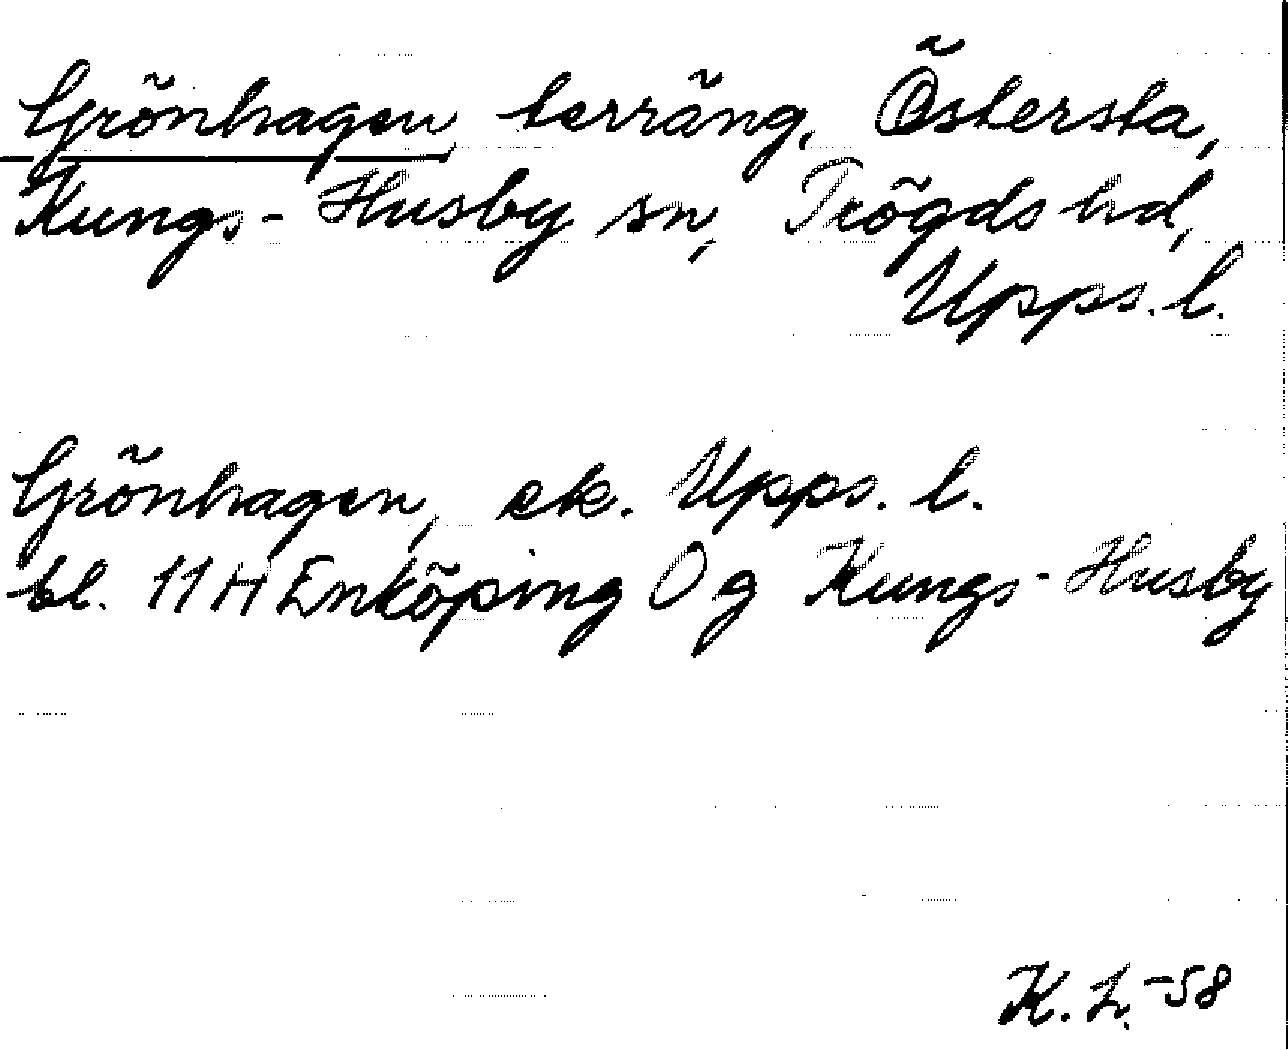 Grönhagen terräng, Östersta,
Kungs-Husby sn, Trögds hd,
Upps. l.
Grönhagen, ek. Upps. l.
bl. 11H Enköping 0g Kungs-Husby
K. L. -58